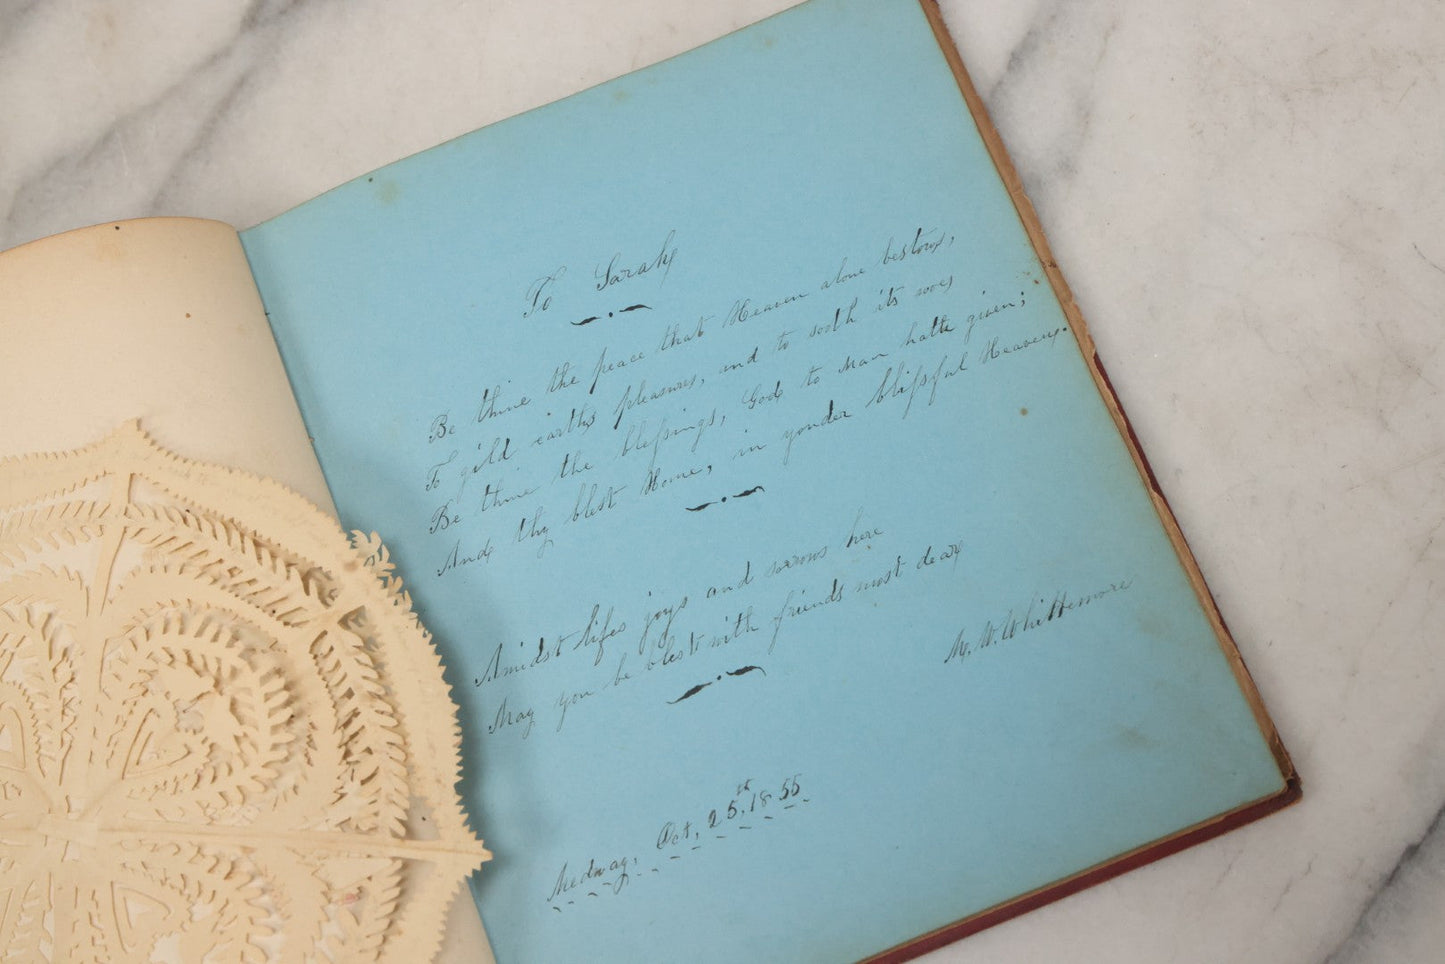 To Sarah
Be thine the peace that Heaven alone bestows,
To gild earths pleasures, and to sooth its woes
Be thine the blessings, God to man hath given;
And thy blest Home, in yonder blissful Heaven.
Amidst lifes joys and sorrows here
May you be blest with friends most dear
M. W. Whittemore
Medway, Oct, 25, 1855